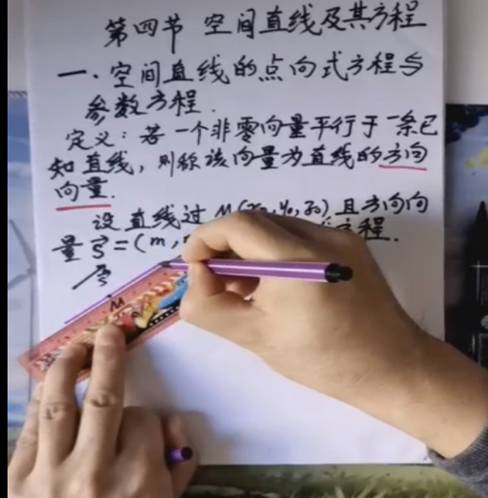 第四节 空间直线及其方程
一.空间直线的点向式方程与
参数方程.
定义:若一个非零向量平行于一条已
知直线,则称该向量为直线的方向
向量.
设直线过 M(x₀,y₀,z₀)且方向向
量 s⃗=(m, 方程.
s⃗
M